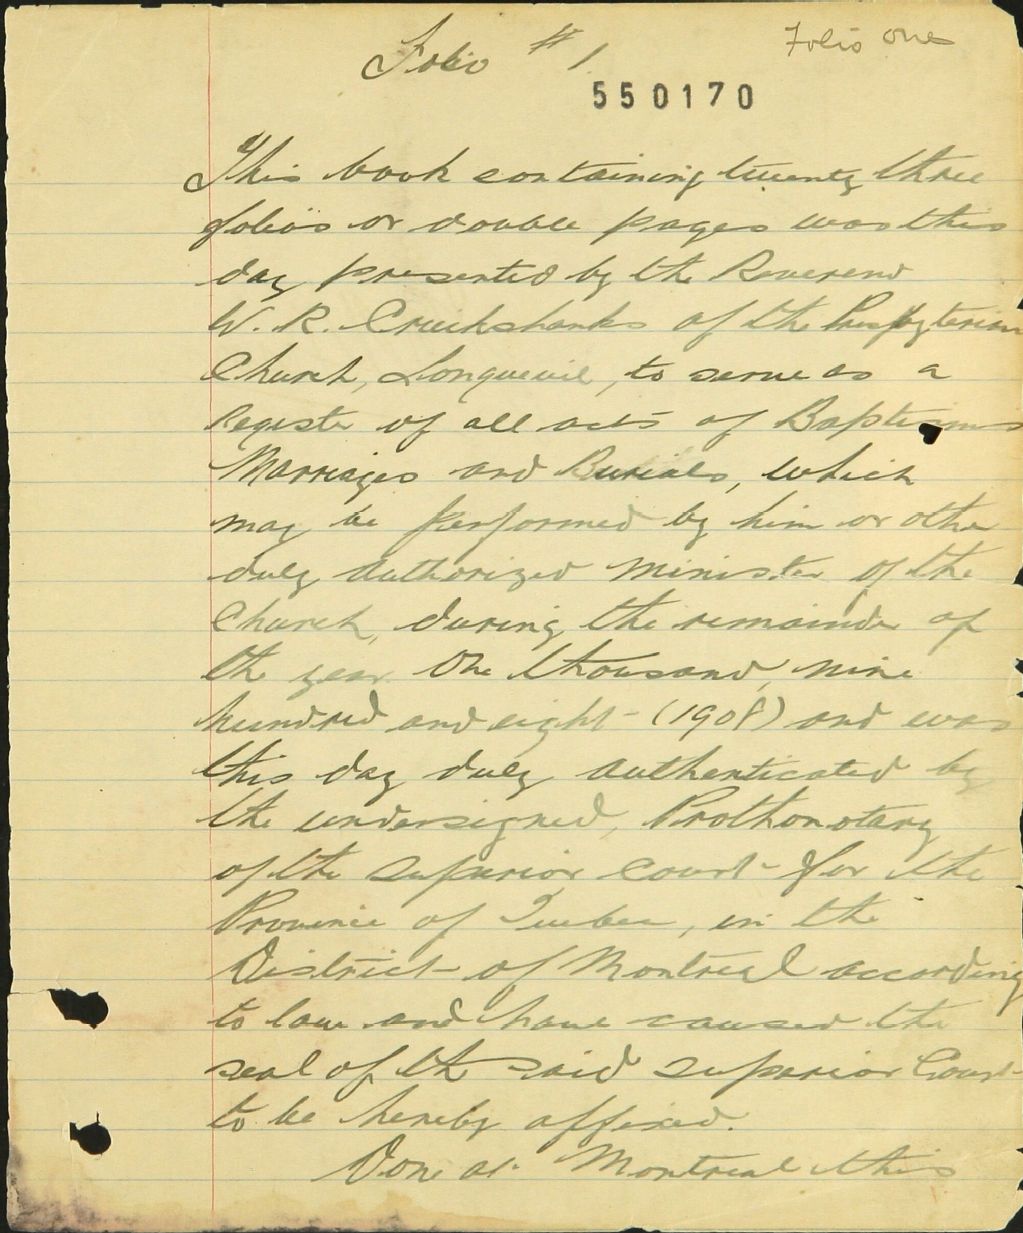 Folio # 1
Folio one
550170
This book containing twenty three
folios or double pages was this
day presented by the Reverend
W. R. Cruikshanks of the Presbyterian
Church, Longueuil, to serve as a
Register of all acts of Baptisms
Marriages and Burials, which
may be performed by him or other
duly authorized minister of the
Church, during the remainder of
the year One thousand, nine
hundred and eight - (1908) and was
this day duly authenticated by
the undersigned, Prothonotary
of the Superior Court for the
Province of Quebec, in the
District of Montreal according
to law and have caused the
seal of the said Superior Court
to be hereby affixed.
Done at Montreal this